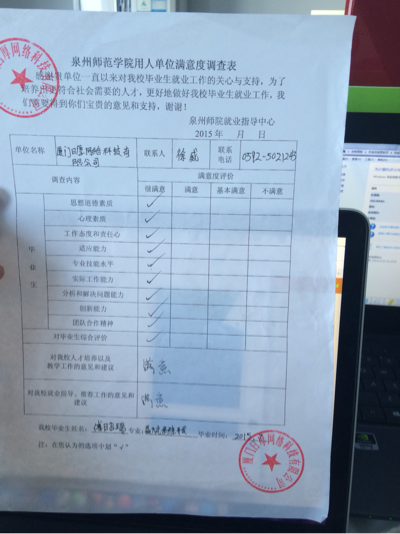 泉州师范学院用人单位满意度调查表
感谢贵单位一直以来对我校毕业生就业工作的关心与支持，为了
培养出更符合社会需要的人才，更好地做好我校毕业生就业工作，我
们需要得到你们宝贵的意见和支持，谢谢！
泉州师院就业指导中心
2015 年 月 日
单位名称 厦门日晖网络科技有限公司 联系人 徐威 联系电话 0592-5021245
调查内容 满意度评价
很满意 满意 基本满意 不满意
毕业生
思想道德素质 ✓
心理素质 ✓
工作态度和责任心 ✓
适应能力 ✓
专业技能水平 ✓
实际工作能力 ✓
分析和解决问题能力 ✓
创新能力 ✓
团队合作精神 ✓
对毕业生综合评价 ✓
对我校人才培养以及
教学工作的意见和建议 满意
对我校就业指导、推荐工作的意见和
建议 满意
我校毕业生姓名： 专业： 毕业时间：2015
注：在您认为的选项中划“√”